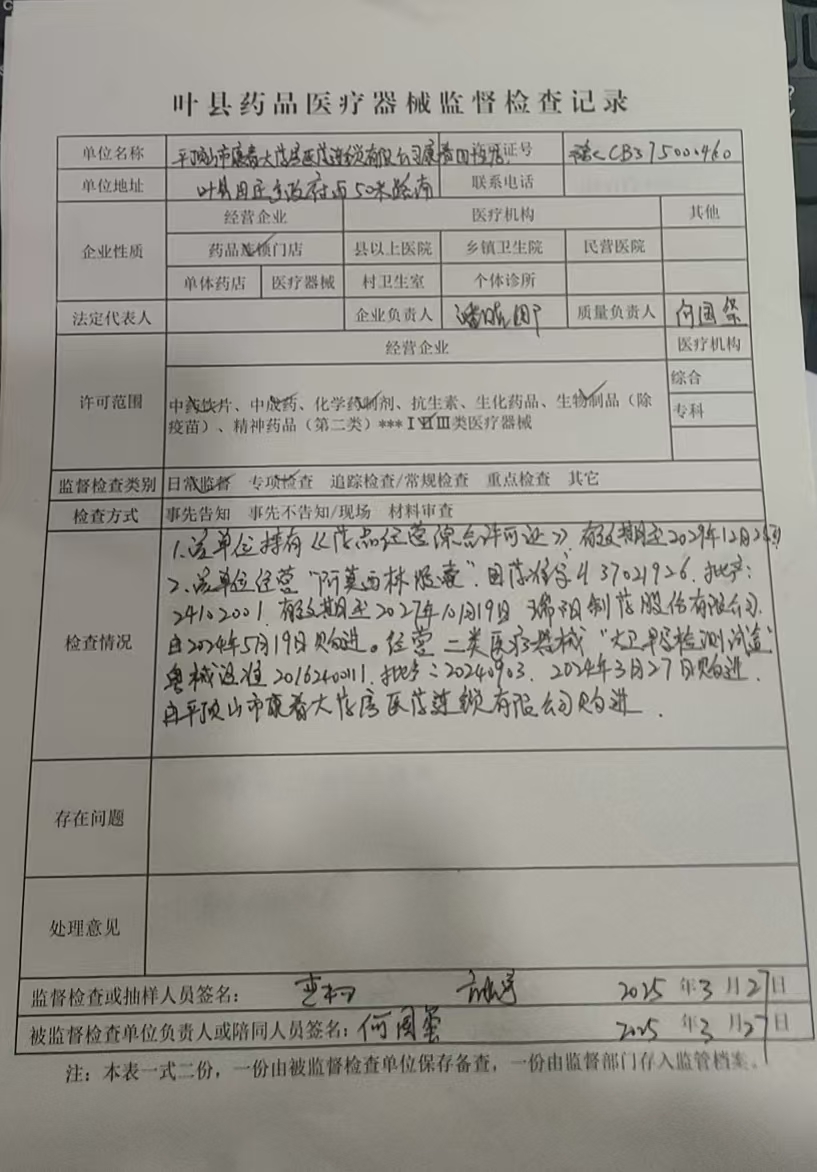 叶县药品医疗器械监督检查记录
单位名称 平顶山市康春大药房医药连锁有限公司 证号 豫CCB37500460
单位地址 叶县田庄乡政府西50米路南 联系电话
企业性质 经营企业 医疗机构 其他
药品连锁门店 县以上医院 乡镇卫生院 民营医院
单体药店 医疗器械 村卫生室 个体诊所
法定代表人 企业负责人 潘 质量负责人 何国
许可范围 经营企业 医疗机构
综合
中药饮片、中成药、化学药制剂、抗生素、生化药品、生物制品(除
专科
疫苗)、精神药品(第二类)***ⅠⅡⅢ类医疗器械
监督检查类别 日常监督 专项检查 追踪检查/常规检查 重点检查 其它
检查方式 事先告知 事先不告知/现场 材料审查
检查情况
1.该单位持有《药品经营综合许可证》,有效期至2029年12月24日
2、该单位经营"阿莫西林胶囊".国药准字H37021926.批号:
24102001.有效期至2027年10月19日 绵阳制药股份有限公司.
自2024年5月19日购进。经营二类医疗器械"大卫早孕检测试盒"
粤械注准20162400111.批号:20240903.2024年3月27日购进.
自平顶山市康春大药房医药连锁有限公司购进.
存在问题
处理意见
监督检查或抽样人员签名: 2025年3月27日
被监督检查单位负责人或陪同人员签名:何国 2025年3月27日
注:本表一式二份,一份由被监督检查单位保存备查,一份由监督部门存入监管档案。